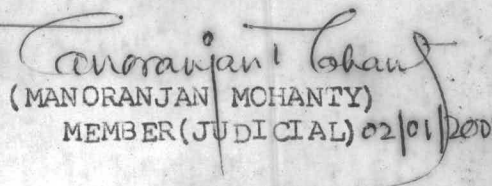 Manoranjan Mohanty
(MANORANJAN MOHANTY)
MEMBER(JUDICIAL) 02/01/200